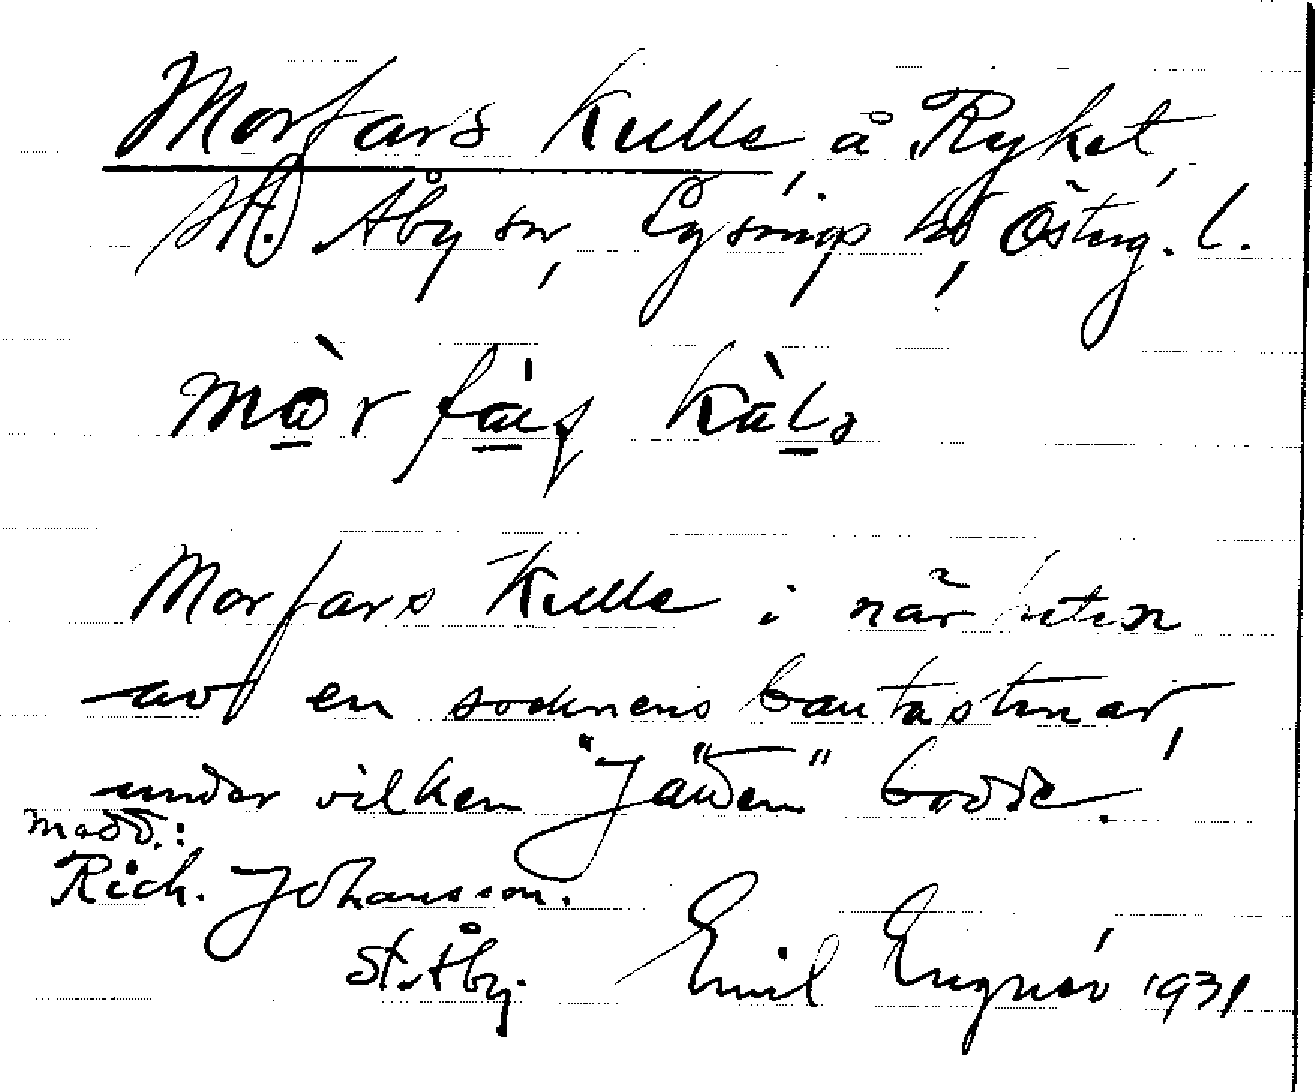 Morfars Kulle, å Ryket,
St. Åby sn, Lysings hd, Österg. l.
Morfars Kulle i närheten
av en socknens bautastenar,
under vilken "Jätten" bodde.
Medd.:
Rich. Johansson.
St. Åby. Emil 1931